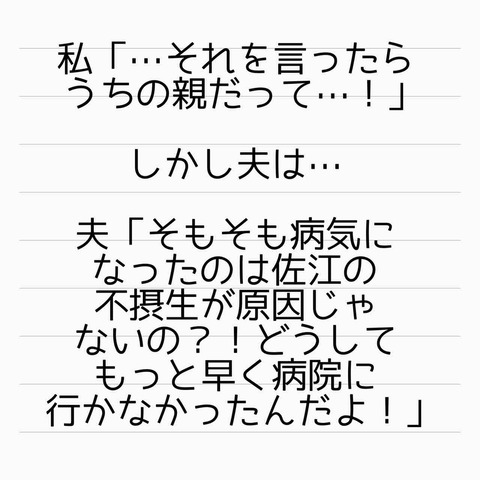 私「…それを言ったら
うちの親だって…！」
しかし夫は…
夫「そもそも病気に
なったのは佐江の
不摂生が原因じゃ
ないの？！どうして
もっと早く病院に
行かなかったんだよ！」